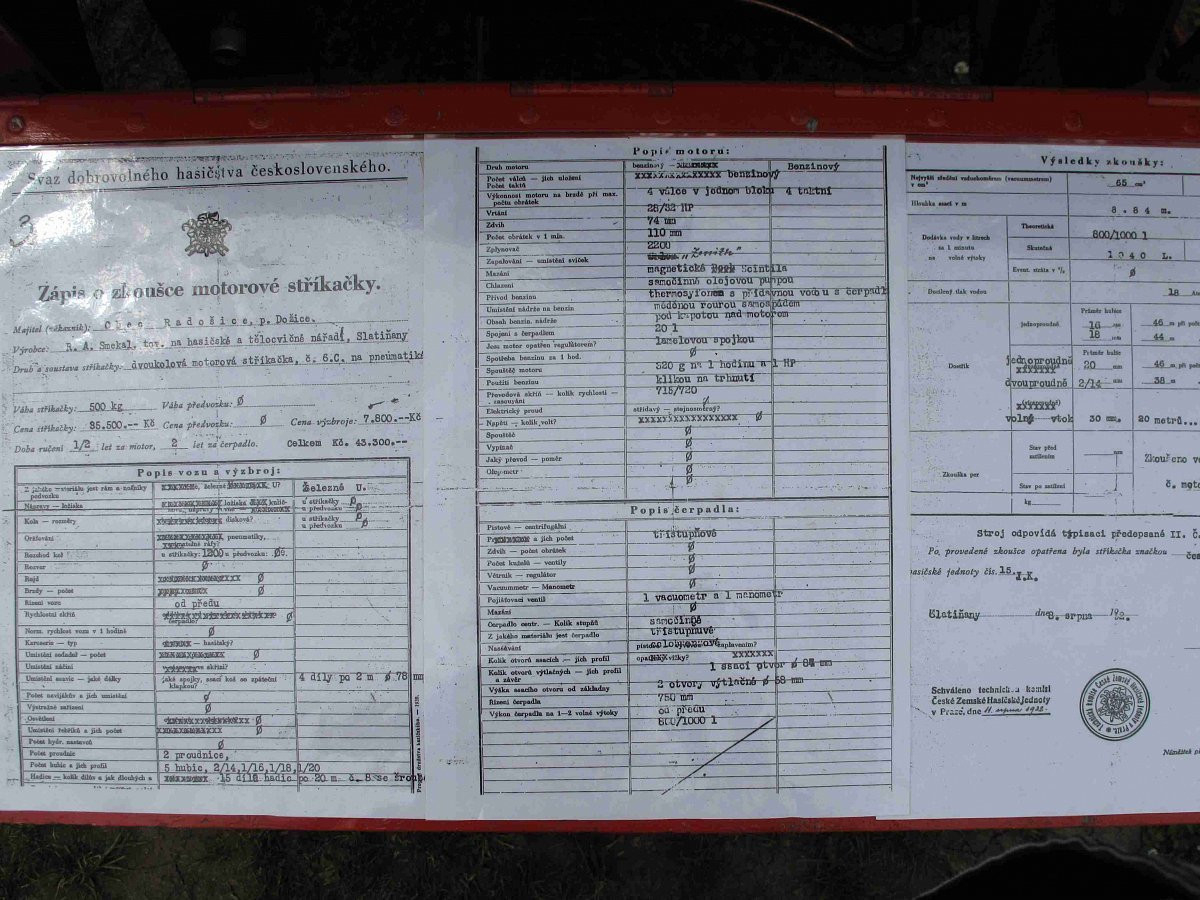 Svaz dobrovolného hasičstva československého.
3
Zápis o zkoušce motorové stříkačky.
Majitel (věhaznik): Obec Radošice, p. Dožice.
Výrobce: R. A. Smekal, tov. na hasičské a tělocvičné nářadí, Slatiňany
Druh a soustava stříkačky: dvoukolová motorová stříkačka, č. 6.C. na pneumatiká
Váha stříkačky: 500 kg Váha předvozku: Ø
Cena stříkačky: 35.500.-- Kč Cena předvozku: Ø Cena výzbroje: 7.800.--Kč
Doba ručení 1/2 let za motor, 2 let za čerpadlo. Celkem Kč. 43.300.--
Popis vozu a výzbroj:
Z jakého materiálu jest rám a nožníky podvozku železné U? Železné U.
Nápravy — ložiska ložiska u stříkačky Ø u předvozku Ø
Kola — rozměry disková? u stříkačky Ø u předvozku Ø
Oráfování pneumatiky,
Rozchod kol u stříkačky: 1200 u předvozku: Ø
Rozvor Ø
Rejd Ø
Brzdy — počet Ø
Řízení vozu od předu
Rychlostní skříň čerpadlo? Ø
Norm. rychlost vozu v 1 hodině Ø
Karoserie — typ hasičský?
Umístění sedadel — počet Ø
Umístění náčiní skříni?
Umístění savic — jaké délky jaké spojky, ssací koš se zpáteční klapkou? 4 díly po 2 m Ø 78 mm
Počet navijáků a jich umístění Ø
Výstražné zařízení Ø
Osvětlení Ø
Umístění žebříků a jich počet Ø
Počet hydr. nástavců Ø
Počet proudnic 2 proudnice,
Počet hubic a jich profil 5 hubic, 2/14,1/16,1/18,1/20
Hadice — kolik dílův a jak dlouhých a 15 dílů hadic po 20 m. č. 8 se šroub
Popis motoru:
Druh motoru benzinový Benzinový
Počet válců — jich uložení benzinový
Počet taktů
Výkonnost motoru na brzdě při max. počtu obrátek 4 válce v jednom bloku 4 taktní
Vrtání 28/32 HP
Zdvih 74 mm
Počet obrátek v 1 min. 110 mm
Zplynovač 2200
Zapalování — umístění svíček „Zenith"
Mazání magnetická Scintila
Chlazení samočinné olejovou pumpou
Přívod benzinu thermosyfonem s přídavnou vodou s čerpadl
Umístění nádrže na benzin měděnou rourou samospádem
Obsah benzin. nádrže pod kapotou nad motorem
Spojení s čerpadlem 20 l
Jest motor opatřen regulátorem? lamelovou spojkou
Spotřeba benzinu za 1 hod. Ø
Spouštění motoru 320 g na 1 hodinu a 1 HP
Použití benzinu klikou na trhnutí
Převodová skříň — kolik rychlostí — zasouvání 715/720
Ø
Elektrický proud střídavý — stejnosměrný?
Napětí — kolik volt? Ø
Spouštěč Ø
Vypínač Ø
Jaký převod — poměr Ø
Ø
Ø
Popis čerpadla:
Pístové — centrifugální
a jich počet třístupňové
Zdvih — počet obrátek Ø
Počet kuželů — ventily Ø
Větrník — regulátor Ø
Vacuummetr — Manometr Ø
Pojišťovací ventil 1 vacuometr a 1 manometr
Mazání Ø
Čerpadlo centr. — Kolik stupňů samočinné
Z jakého materiálu jest čerpadlo třístupňové
Nassávání
Kolik otvorů ssacích — jich profil
Kolik otvorů výtlačných — jich profil a závěr 1 ssací otvor Ø 84 mm
Výška ssacího otvoru od základny 2 otvory výtlačné Ø 68 mm
Řízení čerpadla 750 mm
Výkon čerpadla na 1—2 volné výtoky od předu
800/1000 l
Výsledky zkoušky:
Nejvyšší středění vzduchoměrem (vacuummetrem) v cm³ 65 cm³
Hloubka ssací v m 8.84 m.
Dodávka vody v litrech za 1 minutu na volné výtoky
Theoretická 800/1000 l
Skutečná 1040 L.
Event. ztráta v % Ø
Docílený tlak vodou 18
Dostřik
jednoproudně Průměr hubice
16 mm 46 m při
18 mm 44 m
jednoproudně Průměr hubice 20 mm 46 m při
dvouproudně 2/14 mm 38 m
volný vtok 30 mm. 20 metrů...
Zkouška per
Stav před zatížením mm Zkoušeno v
Stav po zatížení č. moto
kg
Stroj odpovídá typisaci předepsané II. č.
Po provedené zkoušce opatřena byla stříkačka značkou čes
hasičské jednoty čís. 15. J.K.
Slatiňany dne 8. srpna 19
Schváleno technickou komisí
České Zemské Hasičské Jednoty
v Praze, dne 11. srpna 1932.